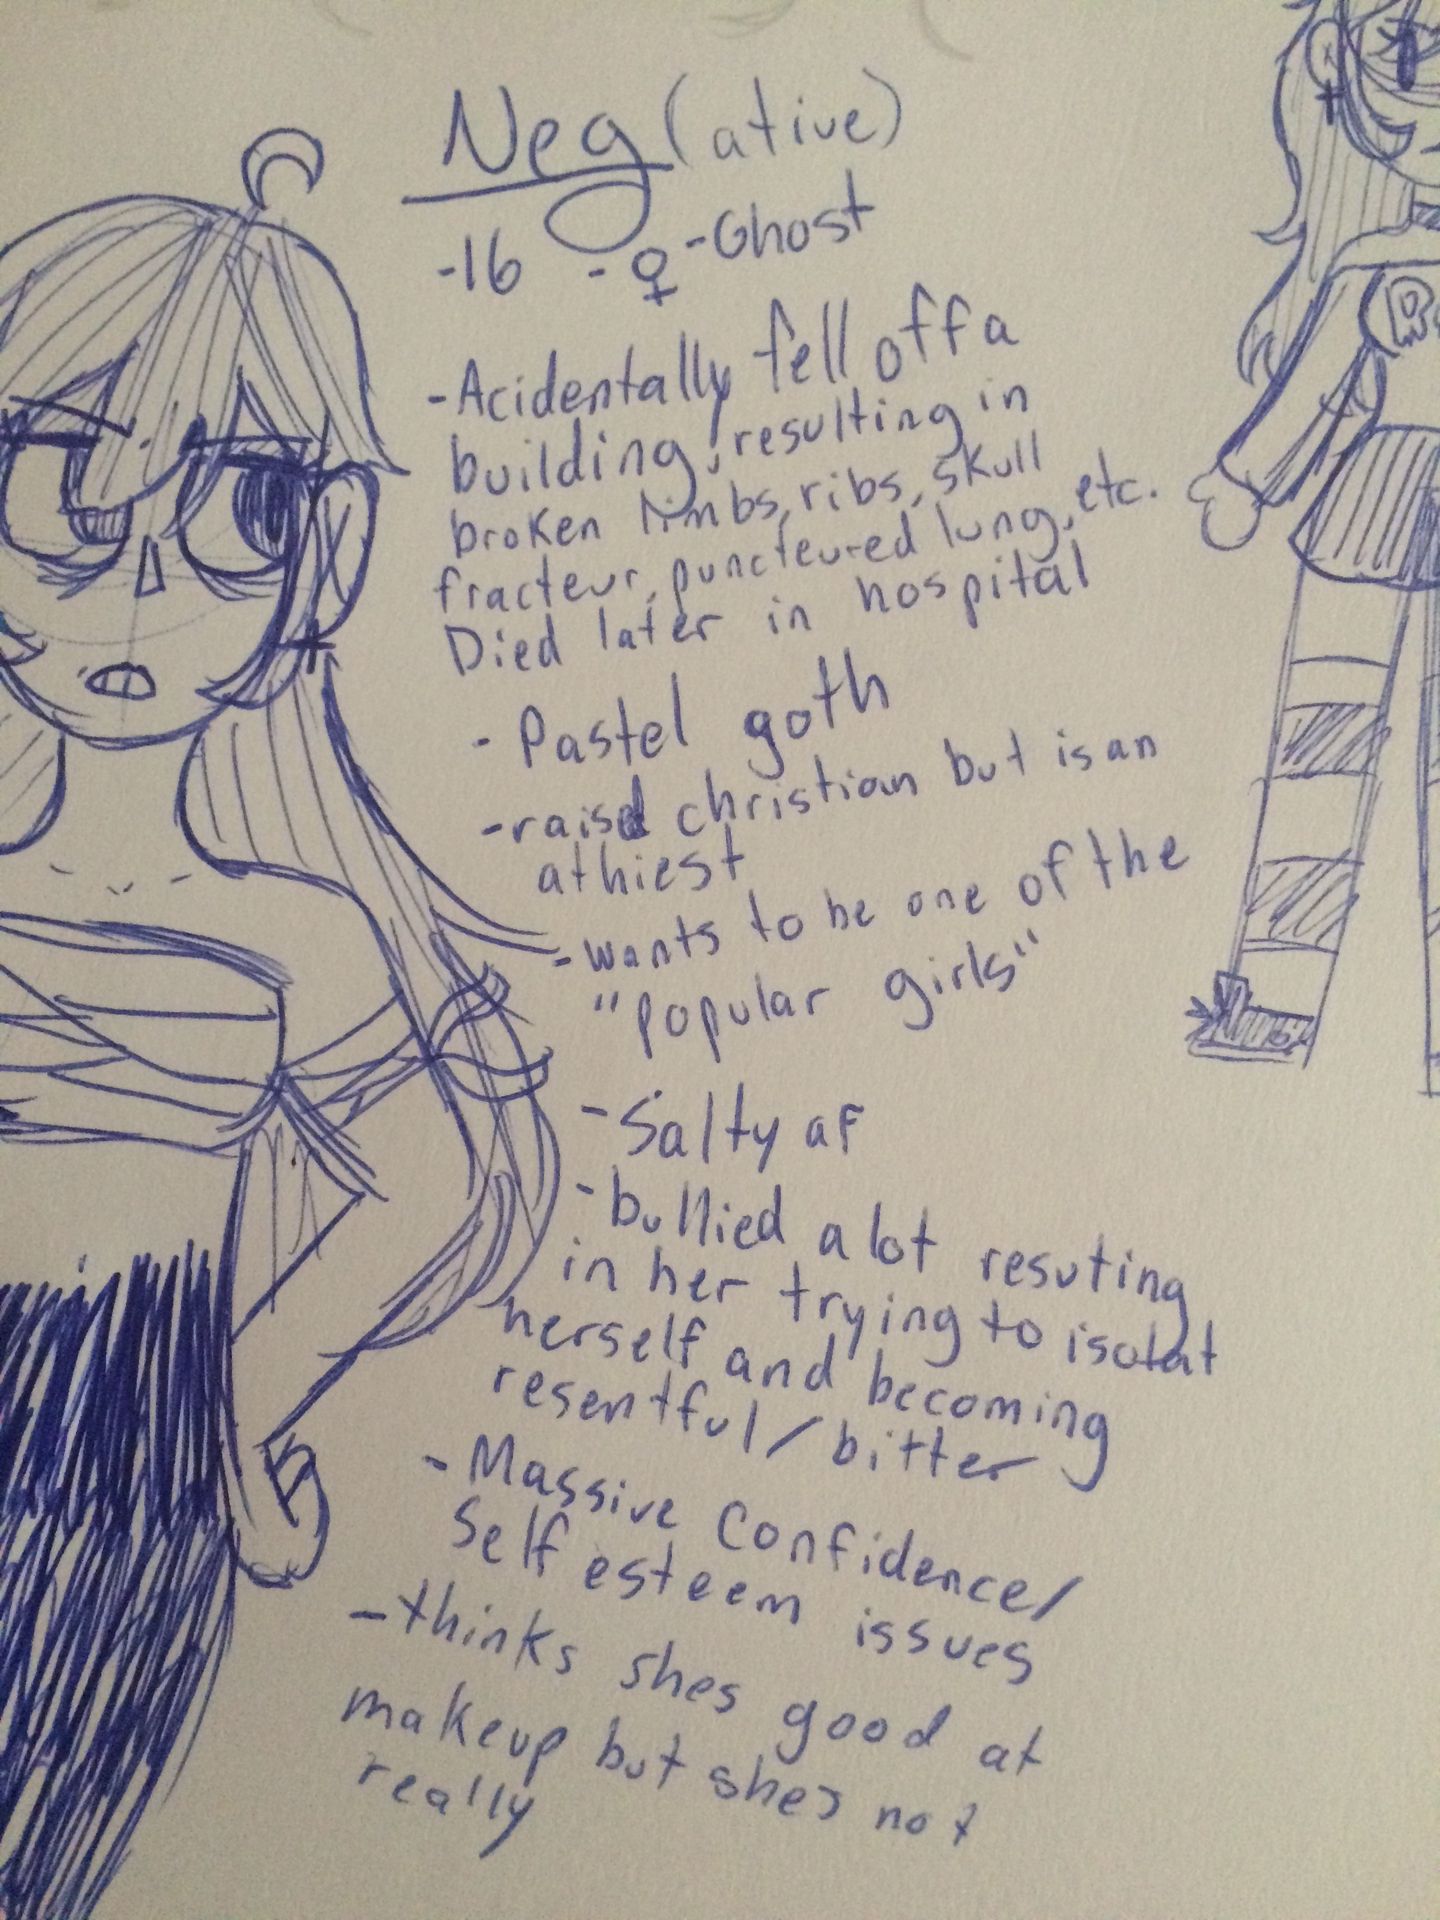 Neg(ative)
-16 -♀ -Ghost
-Acidentally fell off a
building, resulting in
broken limbs, ribs, skull
fracteur, puncteured lung, etc.
Died later in hospital
- Pastel goth
-raisd christian but is an
athiest
-wants to be one of the
"popular girls"
-Salty af
-bullied a lot resuting
in her trying to isolat
herself and becoming
resentful/bitter
-Massive Confidence/
Self esteem issues
-thinks shes good at
makeup but shes not
really